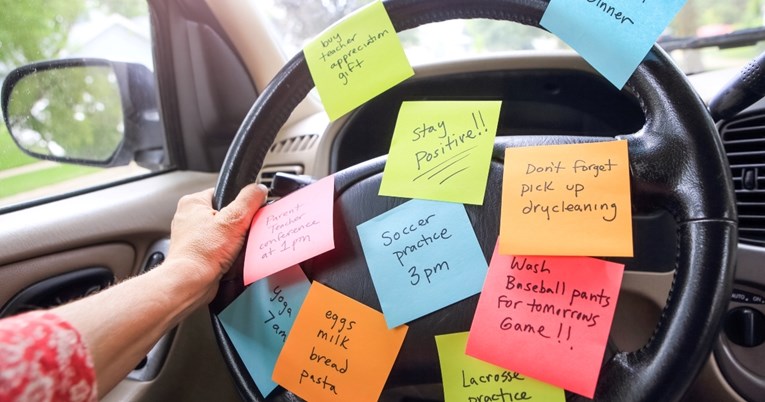 buy
teacher
appreciation
gift
Dinner
Stay
Positive!!
Don't forget
pick up
drycleaning
Parent
Teacher
conference
at 1pm
Soccer
practice
3pm
Wash
Baseball pants
for tomorrows
Game!!
yoga
7am
eggs
milk
bread
pasta
Lacrosse
practice
AUTO